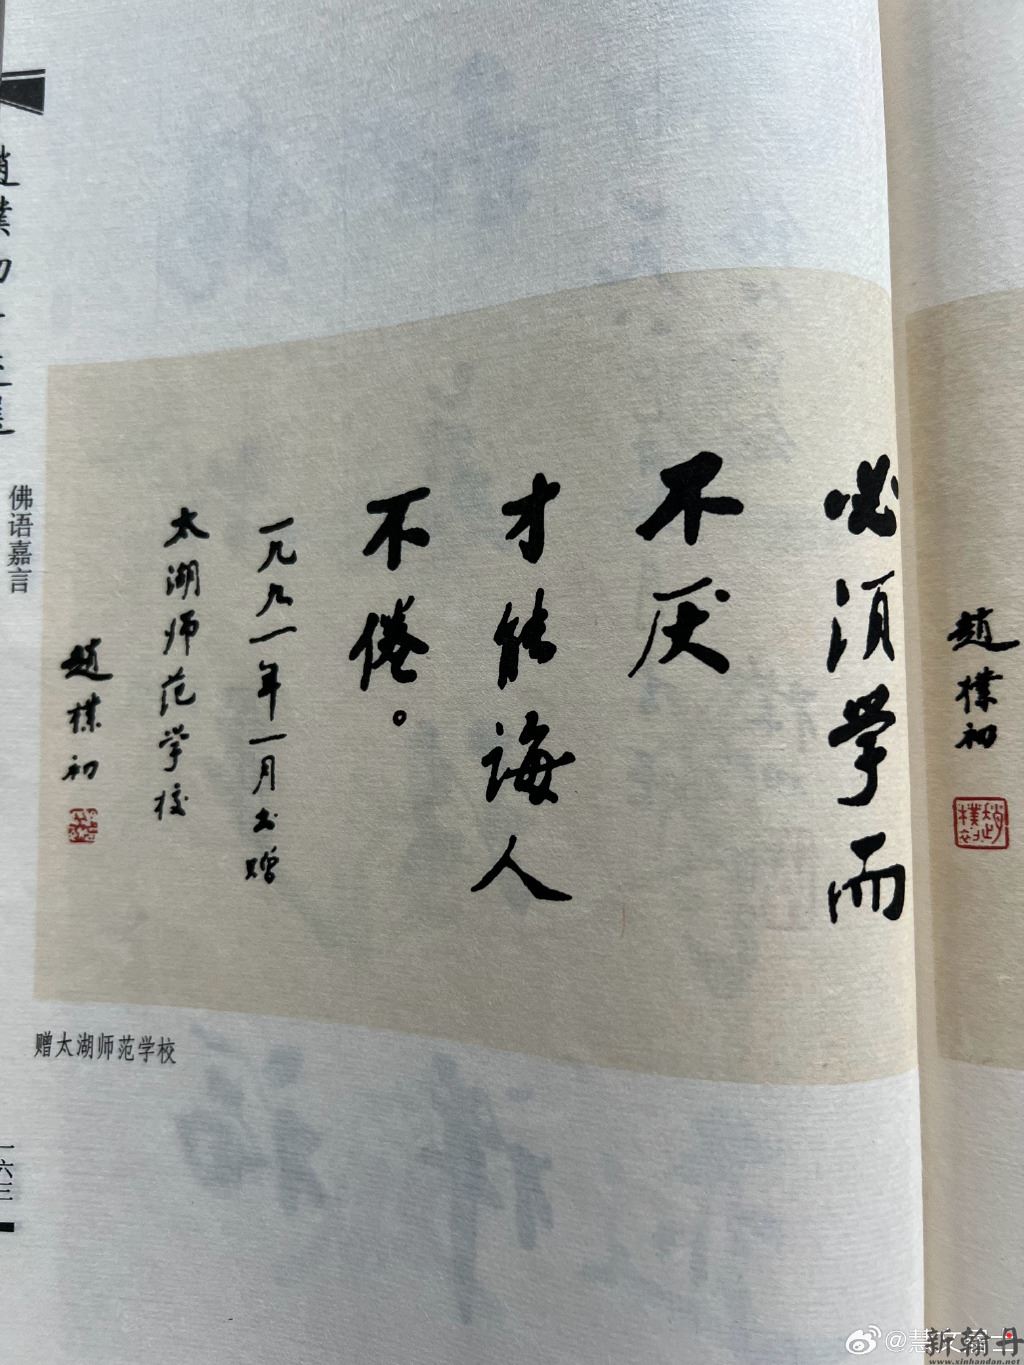 必须学而
不厌
才能诲人
不倦。
一九九一年一月书赠
太湖师范学校
趙樸初
趙樸初
佛语嘉言
赠太湖师范学校
一六三
新翰丹
www.xinhandan.net